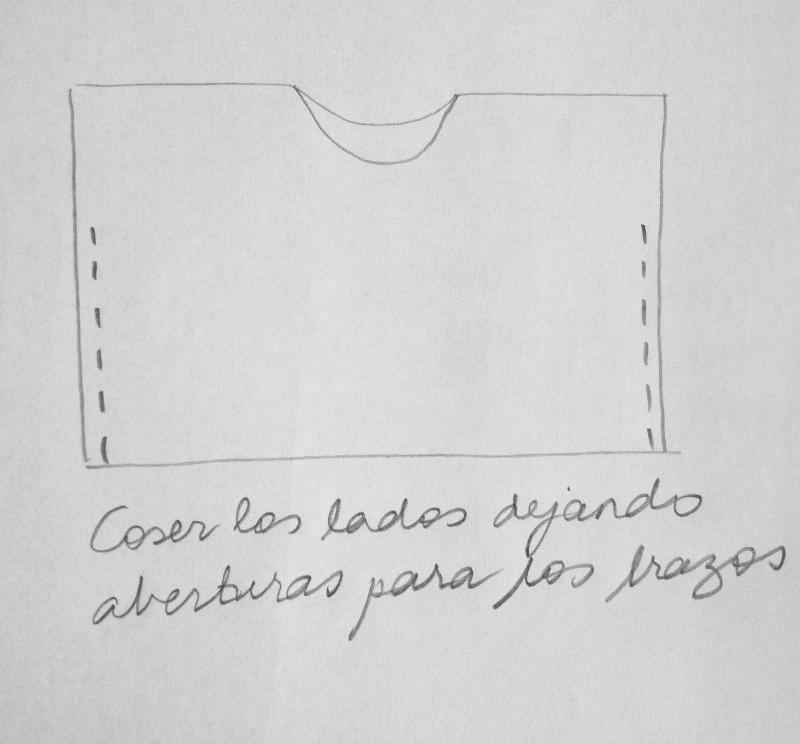 Coser los lados dejando
aberturas para los brazos